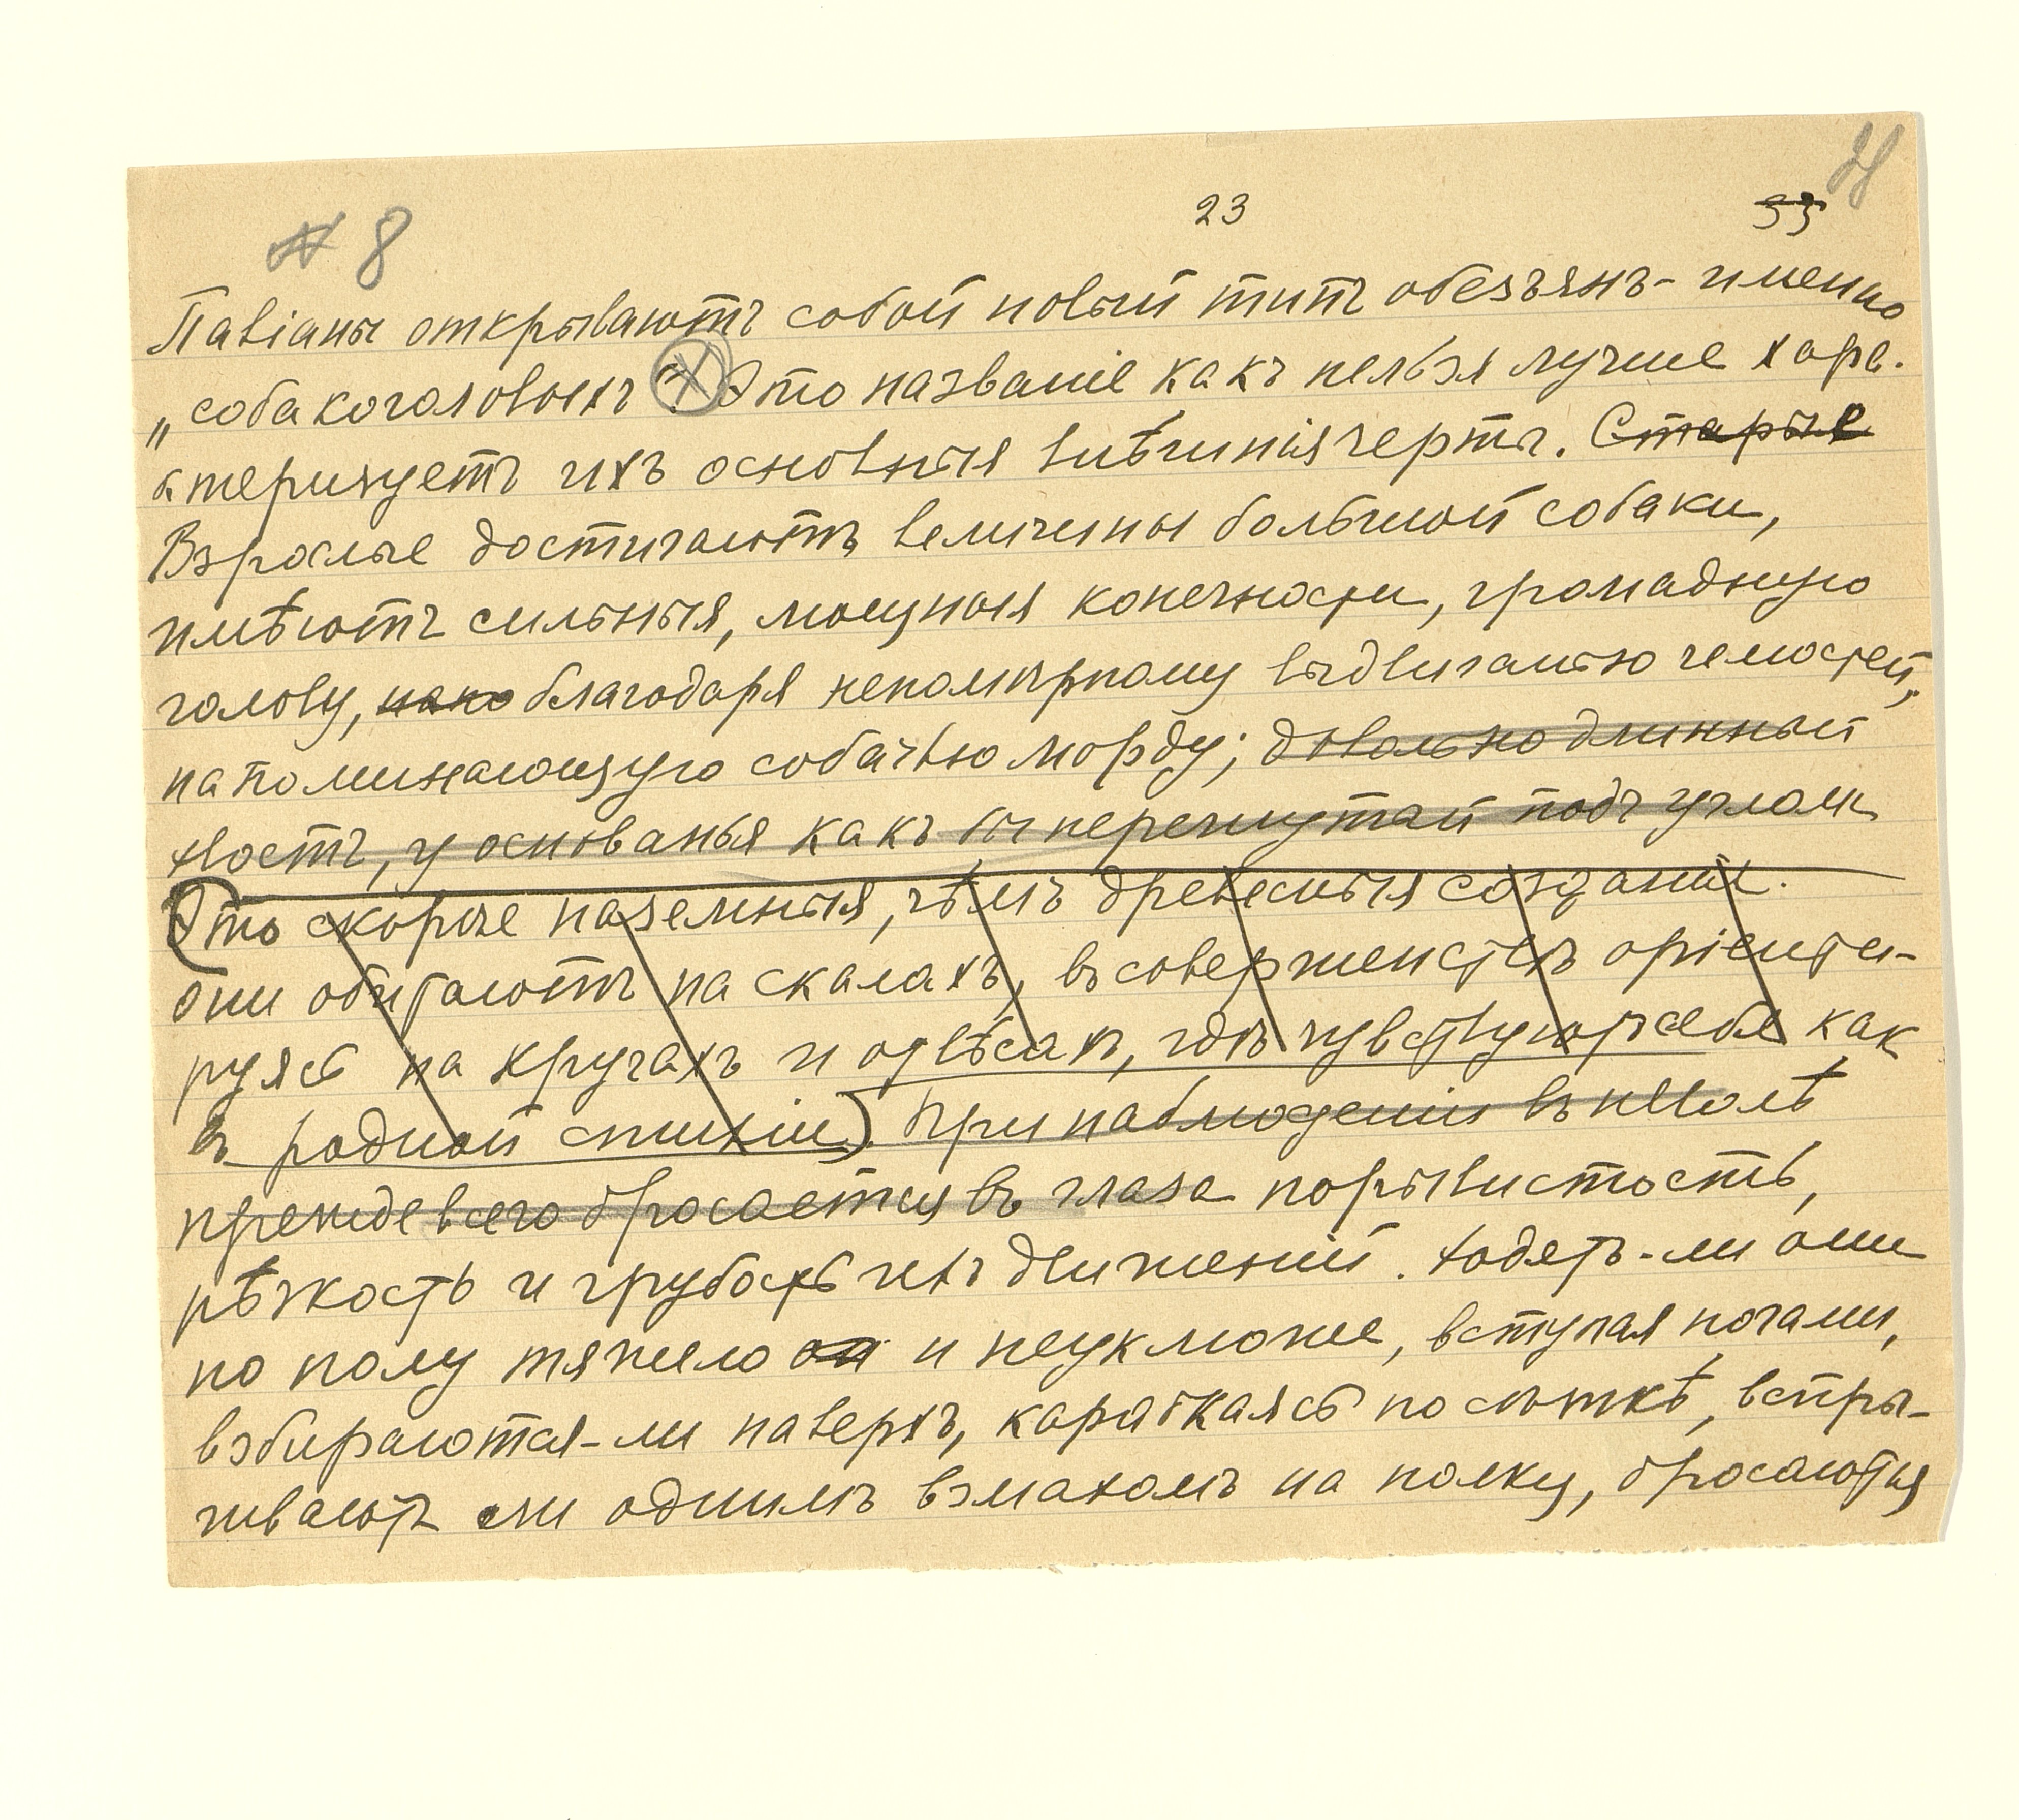 8
23
33
Павіаны открываютъ собой новый типъ обезъянъ - именно
„собакоголовыхъ". Это названіе какъ нельзя лучше хара-
ктеризуетъ ихъ основныя внѣшнія черты. Старые
Взрослые достигаютъ величины большой собаки,
имѣютъ сильныя, мощныя конечности, громадную
голову, напо благодаря непомѣрному выдвиганью челюстей,
напоминающую собачью морду; довольно длинный
хвостъ, у основанья какъ бы перегнутый подъ угломъ
Это скорѣе наземныя, чѣмъ древесныя созданія.
Они обитаютъ на скалахъ, въ совершенствѣ оріенти-
руясь на кручахъ и отвѣсахъ, гдѣ чувствуютъ себя как
въ родной стихіи). При наблюденіи въ неволѣ
прежде всего бросается въ глаза порывистость,
рѣзкость и грубость ихъ движеній. Ходятъ-ли они
по полу тяжело и неуклюже, вступая ногами,
взбираются-ли наверхъ, карабкаясь по сѣткѣ, вспры-
гиваютъ ли однимъ взмахомъ на полку, бросаются